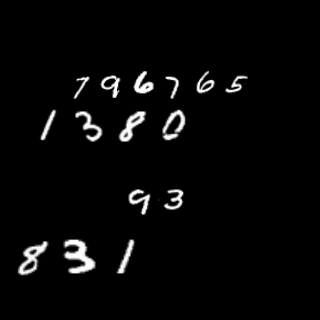 796765
1380
93
831